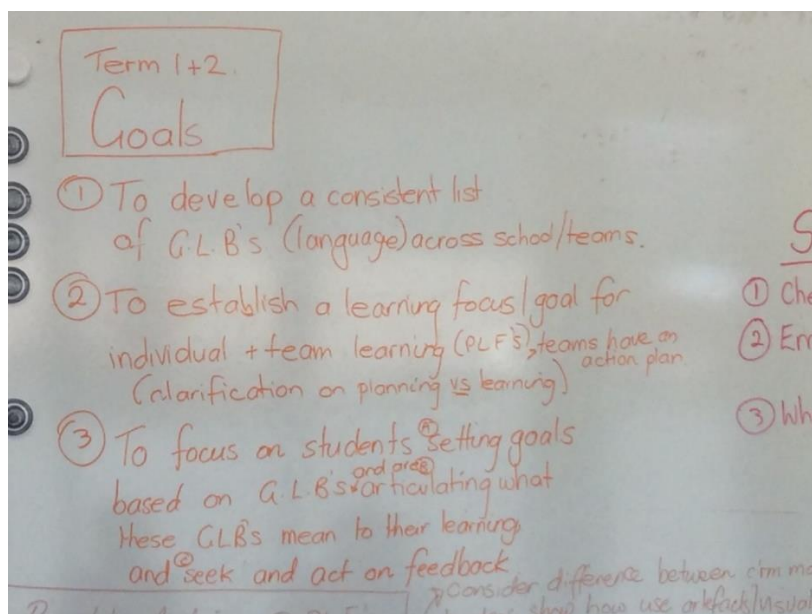 Term 1+2.
Goals
① To develop a consistent list
of G.L.B's (language) across school/teams.
② To establish a learning focus/goal for
individual + team learning (PLF's), teams have an
action plan.
(clarification on planning vs learning)
③ To focus on students Ⓐ setting goals
based on G.L.B's and Ⓑ articulating what
these GLB's mean to their learning
and Ⓒ seek and act on feedback
S
① Che
② Err
③ Wh
Consider difference between
show how use